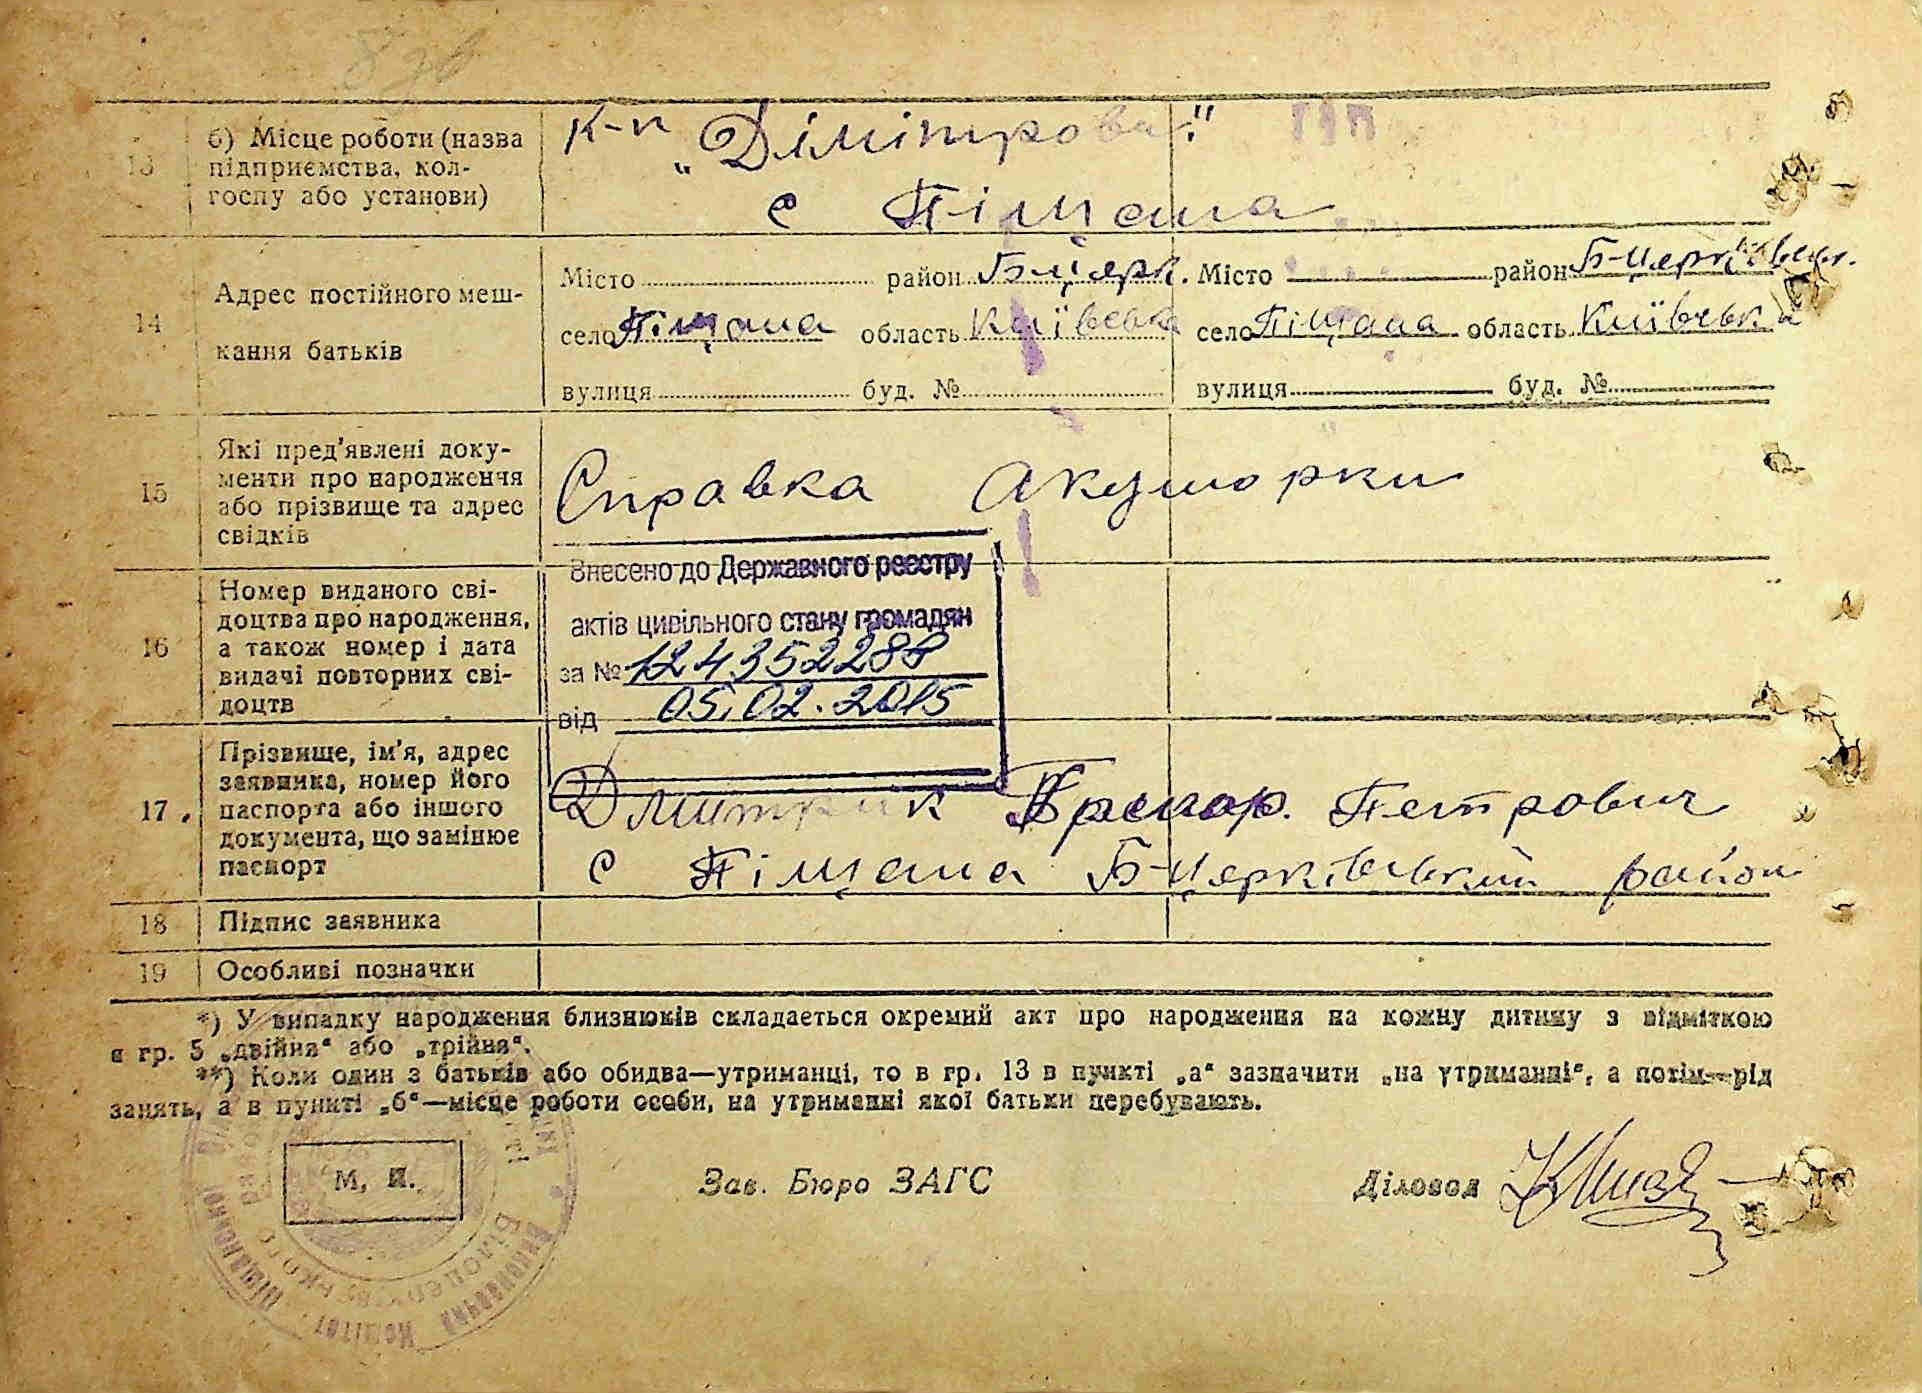 13 б) Місце роботи (назва
підприємства, кол-
госпу або установи)
к-п „Дімітрова"
с Піщана
14 Адрес постійного меш-
кання батьків
Місто район Б-Церк. Місто район Б-Церківськ.
село Піщана область Київська село Піщана область Київська
вулиця буд. № вулиця буд. №
15 Які пред'явлені доку-
менти про народження
або прізвище та адрес
свідків
Справка Акушорки
16 Номер виданого сві-
доцтва про народження,
а також номер і дата
видачі повторних сві-
доцтв
Внесено до Державного реєстру
актів цивільного стану громадян
за № 124352288
від 05.02.2015
17. Прізвище, ім'я, адрес
заявника, номер його
паспорта або іншого
документа, що замінює
паспорт
Дмитрик Петрович
с Піщана Б-Церківський район
18 Підпис заявника
19 Особливі позначки
*) У випадку народження близнюків складається окремий акт про народження на кожну дитину з відміткою
в гр. 5 „двійня" або „трійня".
**) Коли один з батьків або обидва—утриманці, то в гр. 13 в пункті „а" зазначити „на утриманні", а потім—рід
занять, а в пункті „б"—місце роботи особи, на утриманні якої батьки перебувають.
М. П. Зав. Бюро ЗАГС Діловод